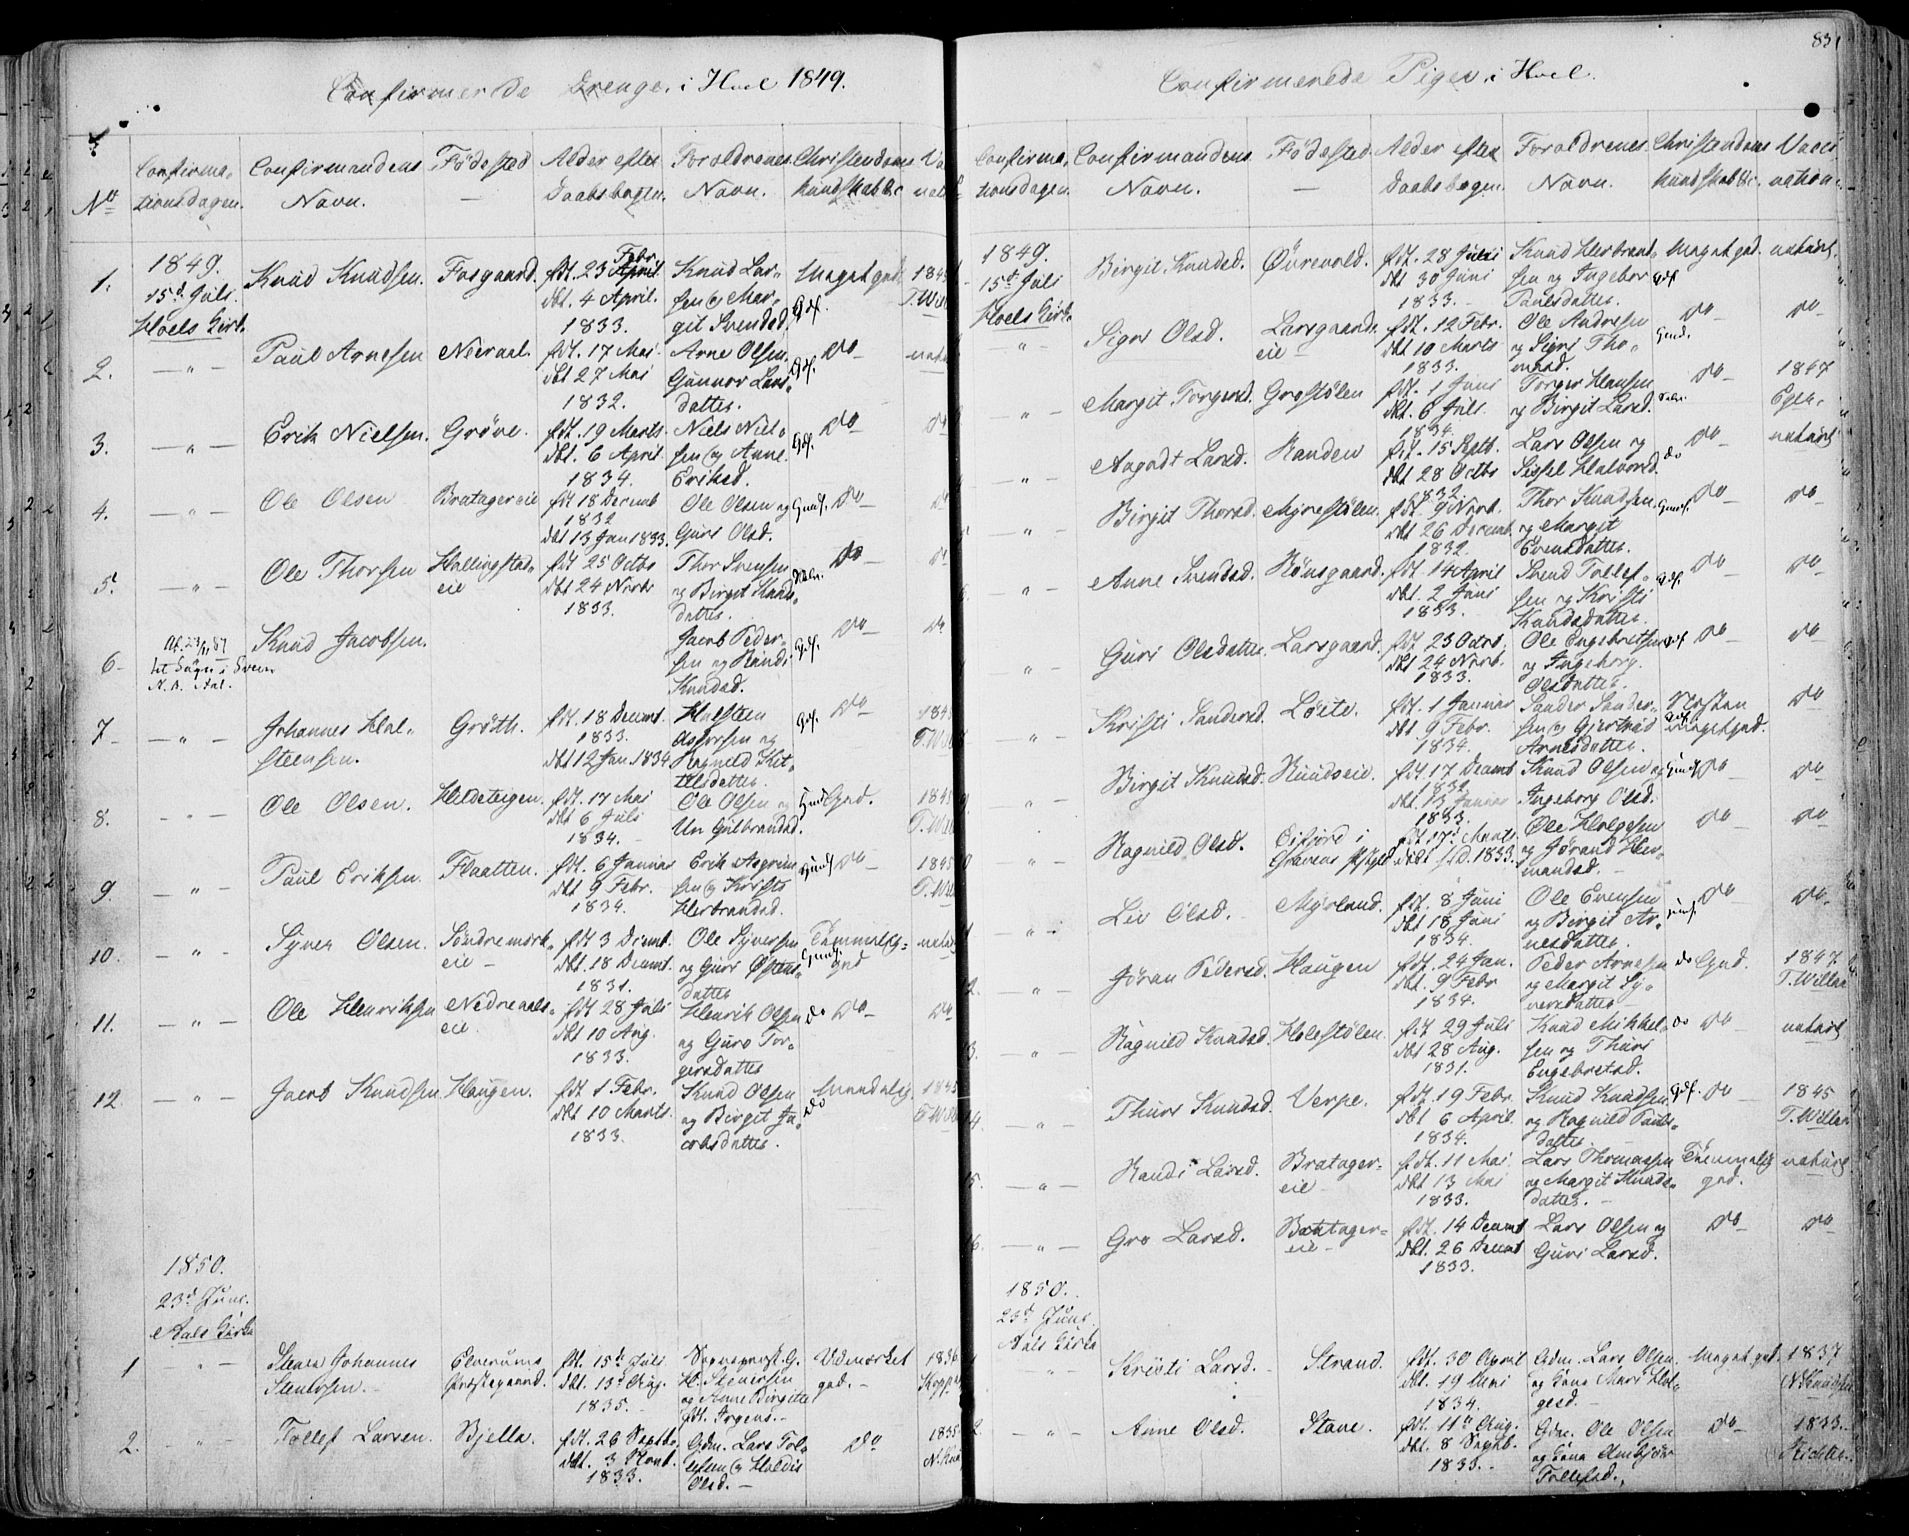 Confirmerede Drenge i Hoel 1849.
No
Confirma-
tionsdagen.
Confirmandens
Navn.
Fødested
Alder efter
Daabsbogen.
Forældrenes
Navn.
Christendoms
kundskab &c
1.
1849.
15d Juli
Hoels Kirke
Knud Knudsen.
Fosgaard.
fdt. 23 April Febr.
dbt. 4 April.
1833.
Knud Lar-
sen og Mar-
git Svendsd.
Gdf.
Meget god.
2.
— " —
Paul Arnesen
Neeraal.
fdt. 17 Mai
dbt 27 Mai
1832.
Arne Olsen
Gunnor Lars-
datter.
Gdf.
Do
3.
— " —
Erik Nielsen.
Grøve.
fdt. 19 Marts
dbt. 6 April
1834.
Niels Niel-
sen og Anne
Eriksd.
Gdf.
Do
Do
4.
— " —
Ole Olsen
Bratagereie
fdt 18 Decemb
1832
dbt 13 Jan 1833.
Ole Olsen og
Guri Olsd.
Do
Do
5.
— " —
Ole Thorsen
Hallingstad-
eie
fdt 25 Octbr
dbt 24 Novbr
1833.
Thor Svensen
og Birgit Knuds-
datter.
Do
Do
6
Knud Jacobsen.
Jacob Peder-
sen og Randi
Knudsd.
Gdf.
Do
Do
7
— " —
Johannes Hal-
steensen.
Grøth.
fdt. 18 Decemt.
1833.
dbt 12 Jan. 1834
Halsteen
Assorsen og
Ragnild Kit-
tilsdatter
Gdf.
Do
1845
T. Will
8.
— " —
Ole Olsen.
Hildeteigen.
fdt. 17 Mai
dbt 6 Juli
1834.
Ole Olsen og
Un Gulbrandsd.
God.
1845
T. Will
9.
— " —
Paul Eriksen.
Flaatten.
fdt. 6 Januar
dbt 9 Febr.
1834.
Erik Asgrim-
sen og Kristi
Herbrandsd.
Do
1845
T. Will
10.
— " —
Syver Olsen.
Søndremørk-
eie
fdt 3 Decmt.
dbt. 18 Decmt.
1831.
Ole Syversen
og Guri Østens-
datter
Temmelig
god
11.
— " —
Ole Henriksen
Nedreaals-
eie.
fdt 28 Juli
dbt 10 Aug.
1833.
Henrik Olsen
og Guro Tor-
gersdatter
do
Do
Do
12.
— " —
Jacob Knudsen
Haugen.
fdt 1 Febr.
dbt 10 Marts.
1833.
Knud Olsen
og Birgit Ja-
cobsdatter.
do
Maadelig.
1845
T. Will
1850.
23d Juni.
Aals Kirke
1
— " —
Steen Johannes
Stenersen.
Elverums
Præstegaard.
fdt. 15d Juli
dbt. 13d Aug.
1835.
Sognepræst G.
H. Stenersen
og Anne Birgitte
fdt. Irgens.
Udmærket
god.
1836
2.
— " —
Tollef Larsen.
Bjella.
fdt. 26 Septbr.
dbt. 3 Novb.
1833.
Gdm. Lars Tol-
lefsen og Haldis
Olsd.
Do
83
Confirmerede Piger i Hoel.
Confirma-
tionsdagen.
Confirmandens
Navn.
Fødested
Alder efter
Daabsbogen.
Forældrenes
Navn.
Christendoms
kundskab &c.
Vacci
nation
1849.
15d Juli
Hoels Kirke
Birgit Knudsd.
Øvrevold.
fdt. 28 Juni
dbt 30 Juni
1833.
Knud Herbrand-
sen og Ingebor
Paulsdatter.
Gdf.
Meget god.
naturl.
— " —
Sigri Olsd.
Larsgaards-
eie
fdt. 12 Febr.
dbt 10 Marts
1833.
Ole Andresen
og Sigri Tho-
masd.
Do
Do
— " —
Margit Torgersd.
Grøstølen
fdt. 1 Juni
dbt. 6 Juli.
1834.
Torger Hansen
og Birgit Larsd.
Do
1847
— " —
Aagodt Larsd.
Randen
fdt. 15 Septb.
dbt 28 Octbr
1832.
Lars Olsen og
Sissel Halvorsd.
do
Do
naturl
— " —
Birgit Thorsd.
Myrestølen.
fdt. 9 Novb.
dbt 26 Decemb.
1832.
Thor Knudsen
og Margit
Evensdatter.
Do
Do
— " —
Anne Svendsd.
Rønsgaard.
fdt. 14 April
dbt. 2 Juni
1833.
Svend Tollef-
sen og Kristi
Knudsdatter.
Gdf.
Do
Do
— " —
Guri Olsdatter
Larsgaard.
fdt. 23 Octb.
dbt 24 Novb.
1833.
Ole Engebretsen
og Ingeborg
Olsdatter.
Gdf.
Do
Do
— " —
Kristi Sandersd.
Løite.
fdt. 1 Januar
dbt. 9 Febr.
1834.
Sander Sander-
sen og Gjertrud
Arnesdatter.
Gdf.
Næsten
meget god.
Do
— " —
Birgit Knudsd.
Rundseie.
fdt. 17 Decmt
1832.
dbt. 13 Januar
1833.
Knud Olsen og
Ingeborg Olsd.
Do
Do
— " —
Ragnild Olsd.
Eifjord i
fdt. 17d Marts
dbt s. d. 1833.
Ole Helgesen
og Jørand Her-
mandsd.
Do
Do
— " —
Liv Olsd.
Myrland.
fdt. 8 Juni
dbt 18 Juni
1834.
Ole Evensen
og Birgit Ar-
nesdatter.
Do
Do
— " —
Jøran Pedersd.
Haugen
fdt. 24 Jan.
dbt. 9 Febr
1834.
Peder Arnesen
og Margit Sy-
versdatter
do
God.
1847
T. Willan
— " —
Ragnild Knudsd.
Holestølen.
fdt 29 Juli
dbt 28 Aug.
1831.
Knud Mikkel-
sen og Thuri
Engebretsd.
do
Do
naturl
— " —
Thuri Knudsd.
Verpe.
fdt. 19 Febr.
dbt 6 April.
1834.
Knud Knudsen
og Ragnild Pauls-
datter
Gdf.
Do
1845
T. Willan
— " —
Randi Larsd.
Bratager-
eie
fdt. 11 Mai
dbt 13 Mai
1833.
Lars Thomassen
og Margit Knuds-
datter.
Temmelig
god.
naturl.
— " —
Gro Larsd.
Bratager-
eie
fdt. 14 Decmt
dbt. 26 Decmt
1833.
Lars Olsen og
Guri Larsd.
Do
Do
1850.
23d Juni
Aals Kirke
Kristi Larsd.
Strand.
fdt. 30 April
dbt. 19 Juni
1834.
Gdm. Lars Olsen
og Kona Mari Hel-
gesd.
Meget god.
1837
N. Knudsen
2.
— " —
Anne Olsd.
Stave.
fdt. 11d Aug.
dbt. 8 Septb.
1833.
Gdm. Ole Olsen
og Kona Ambjør
Tollefsd.
Do
1833.
Richter.